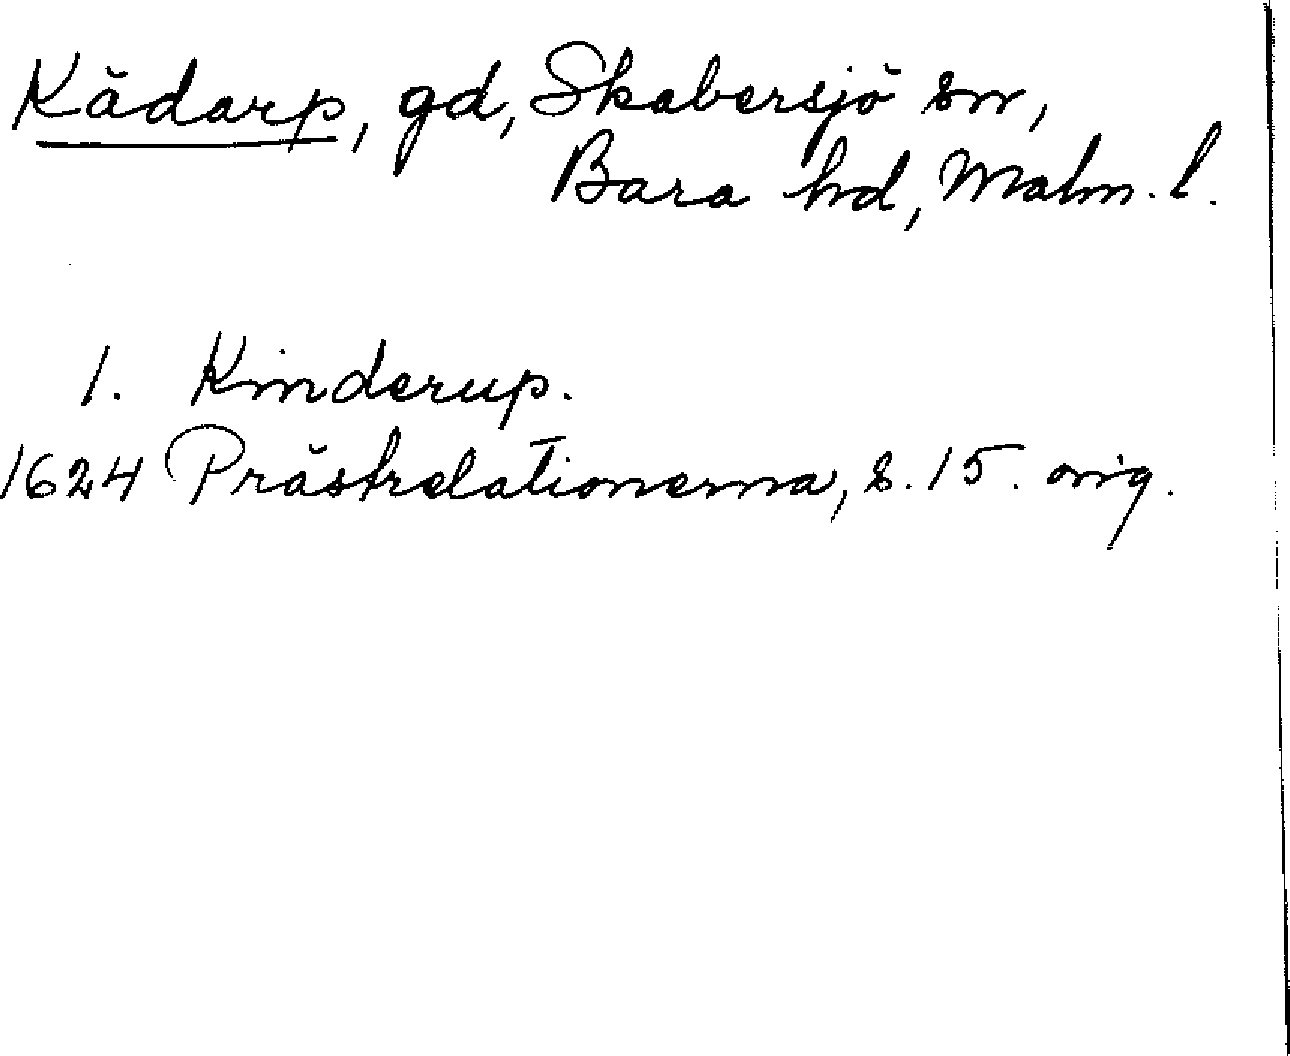 Kädarp, gd, Skabersjö sn,
Bara hd, Malm. l.
1. Kinderup.
1624 Prästrelationerna, s. 15. orig.